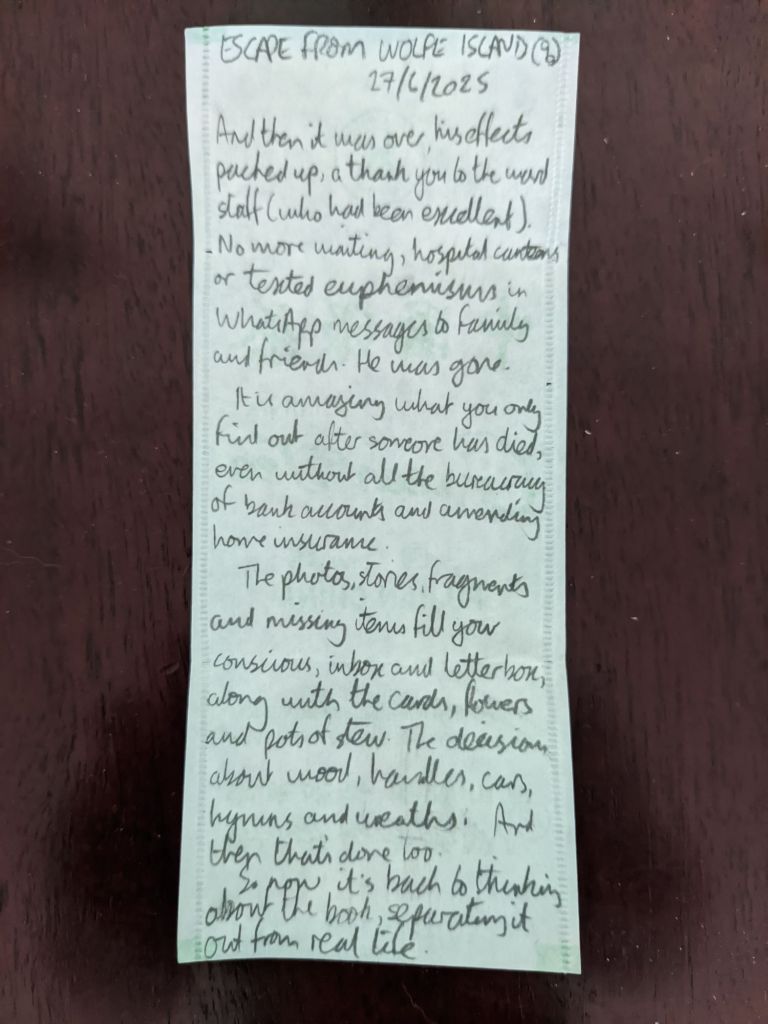 ESCAPE FROM WOLFE ISLAND (9)
27/6/2025
And then it was over, his effects
packed up, a thank you to the ward
staff (who had been excellent).
No more waiting, hospital canteens
or texted euphemisms in
WhatsApp messages to family
and friends. He was gone.
It is amazing what you only
find out after someone has died,
even without all the bureaucracy
of bank accounts and amending
home insurance.
The photos, stories, fragments
and missing items fill your
conscious, inbox and letterbox,
along with the cards, flowers
and pots of stew. The decisions
about wood, handles, cars,
hymns and wreaths. And
then that's done too.
So now it's back to thinking
about the book, separating it
out from real life.